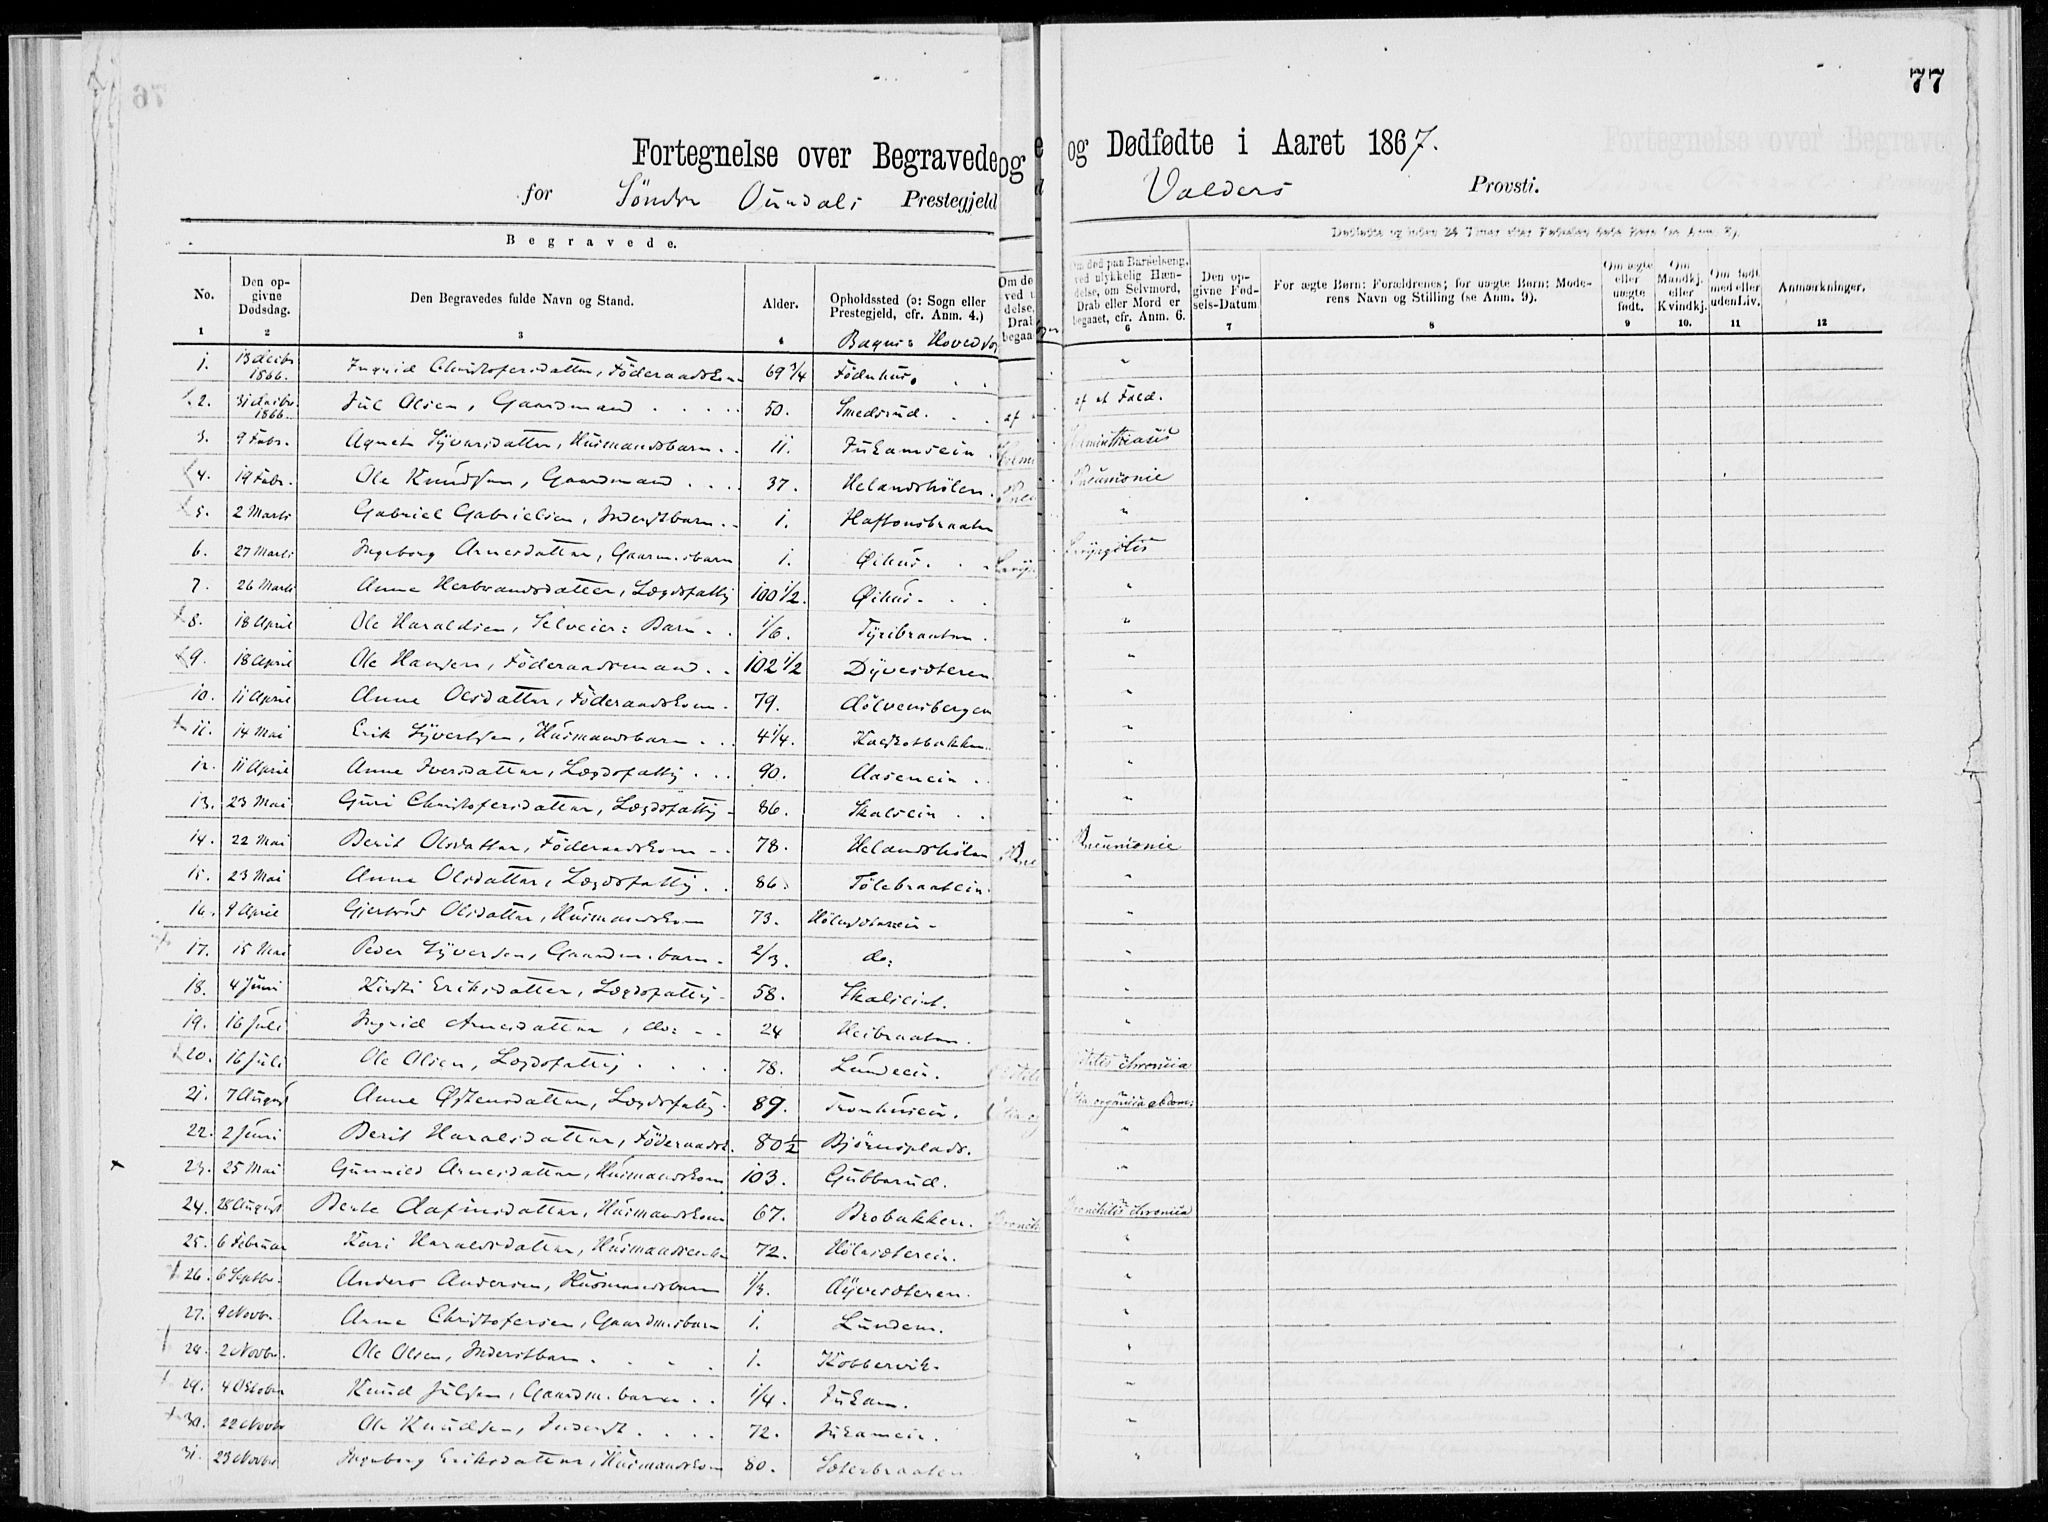 77
Fortegnelse over Begravede og Dødfødte i Aaret 1867.
for Søndre Aurdals Prestegjeld Valders Provsti.
Begravede.
Dødfødte og inden 24 Timer efter Fødselen døde Børn (se Anm. 8).
No. Den opgivne Dødsdag. Den Begravedes fulde Navn og Stand. Alder. Opholdssted (ɔ: Sogn eller Prestegjeld, cfr. Anm. 4.) Om død paa Barselseng, ved ulykkelig Hændelse, om Selvmord, Drab eller Mord er begaaet, cfr. Anm. 6. Den opgivne Fødsels-Datum For ægte Børn: Forældrenes; for uægte Børn: Moderens Navn og Stilling (se Anm. 9). Om ægte eller uægte født. Om Mandkj. eller Kvindkj. Om født med eller uden Liv. Anmærkninger.
1 2 3 4 6 7 8 9 10. 11 12
Bagns Hovedso
1. 13 Decbr 1866. Ingrid Christofersdatter, Föderaadskone 69 3/4 Födnhus. "
2. 31 Decbr 1866. Jul Olsen, Gaardmand 50. Smedsrud. af et Fald.
3. 9 Febr. Agneth Syversdatter, Husmandsbarn 11. Jukamseien Helminthiasis
4. 19 Febr. Ole Knudsen, Gaardmand 37. Helandshölen. Pneumonie
5. 2 Marts Gabriel Gabrielsen, Inderstbarn 1. Haftonsbraaten "
6. 27 Marts Ingeborg Arnesdatter, Gaarmsbarn 1. Øihus. Laryngitis
7. 26 Marts Anne Herbrandsdatter, Lægdsfattig 100 1/2. Øihus. "
8. 18 April Ole Haraldsen, Selveier: Barn 1/6. Tyribraaten. "
9. 18 April Ole Hansen, Föderaadsmand 102 1/2 Dyvesæteren "
10. 11 April Anne Olsdatter, Föderaadskone 79. Aslvensbergen "
11. 14 Mai Erik Syvertsen, Husmandsbarn 4 1/4. "
12. 11 April Anne Iversdatter, Lægdsfattig 90. Aaseneien "
13. 23 Mai Guri Christofersdatter, Lægdsfattig 86. Skalseien "
14. 22 Mai Berit Olsdatter, Föderaadskone 78. Helandshölen Pneumonie
15. 23 Mai Anne Olsdatter, Lægdsfattig 86. Tolebraateien. "
16. 9 April Gjertrud Olsdatter, Husmandskone 73. Hölesætereien "
17. 15 Mai Peder Syversen, Gaardm. barn 2/3. do: "
18. 4 Juni Kirsti Eriksdatter, Lægdsfattig 58. "
19. 16 Juli Ingrid Arnesdatter, do: 24 Heibraaten. "
20. 16 Juli Ole Olsen, Lægdsfattig 78. Lundeein. chronica
21. 7 August Anne Østensdatter, Lægdsfattig 89. Tronhuseien.
22. 2 Juni Berit Haralsdatter, Föderaadsk. 80 1/2 Björnsplads. "
23. 25 Mai Gunnild Arnesdatter, Husmandskone 103. Gubberud. "
24. 28 August Berte Aafinsdatter, Husmandskone 67. Brobakken. Bronchitis chronica
25. 6 Februar Kari Haraldsdatter, 72. Hölesætereien. "
26. 6 Septbr. Anders Andersen, Husmandsbarn 1/3. Dyvesæteren. "
27. 9 Novbr. Anne Christofersen, Gaardmsbarn 1. Lundem. "
28. 2 Novbr. Ole Olsen, Inderstbarn 1. Kobbervik. "
29. 4 Octobr Knud Julsen, Gaardm. barn 1/4. Jukam. "
30. 22 Novbr Ole Knudsen, Inderst 72. Jukameien. "
31. 23 Novbr Ingeborg Eriksdatter, Husmandskone 80. Sæterbraaten "